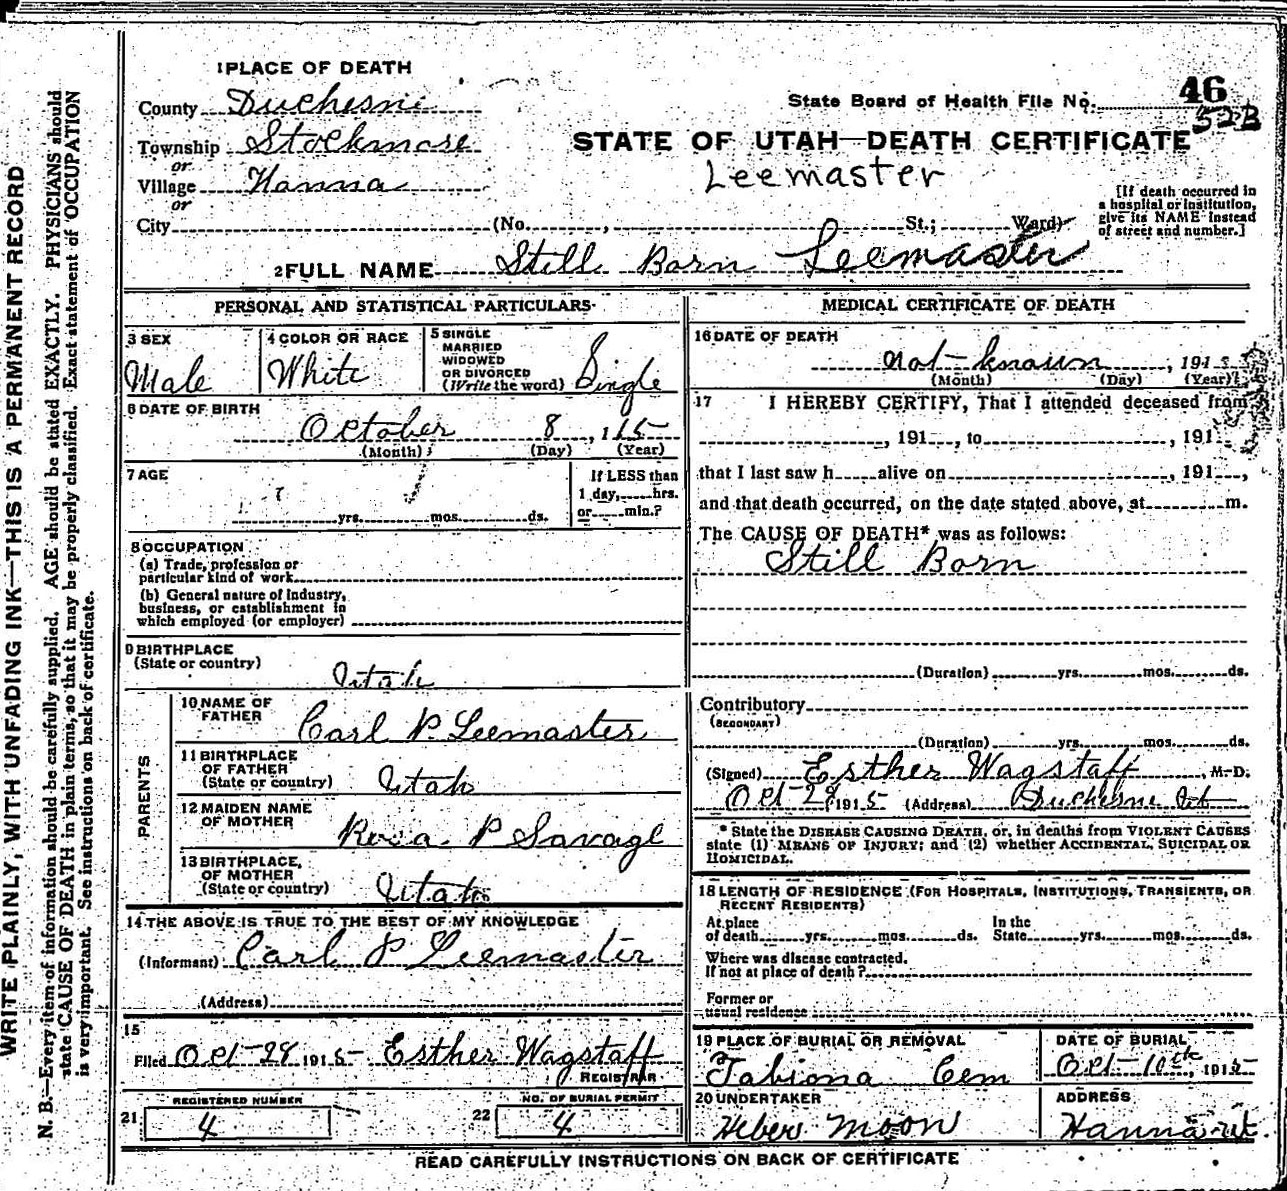 WRITE PLAINLY, WITH UNFADING INK—THIS IS A PERMANENT RECORD
N. B.—Every item of information should be carefully supplied. AGE should be stated EXACTLY. PHYSICIANS should
state CAUSE OF DEATH in plain terms, so that it may be properly classified. Exact statement of OCCUPATION
is very important. See instructions on back of certificate.
1 PLACE OF DEATH
County Duchesne
Township Stockmore
or
Village Hanna
or
City (No. , St.; Ward)
State Board of Health File No. 46
52B
STATE OF UTAH—DEATH CERTIFICATE
Leemaster
[If death occurred in
a hospital or institution,
give its NAME instead
of street and number.]
2 FULL NAME Still Born Leemaster
PERSONAL AND STATISTICAL PARTICULARS
3 SEX
Male
4 COLOR OR RACE
White
5 SINGLE
MARRIED
WIDOWED
OR DIVORCED
(Write the word) Single
6 DATE OF BIRTH
October 8, 115
(Month) (Day) (Year)
7 AGE
yrs. mos. ds.
If LESS than
1 day, hrs.
or min.?
8 OCCUPATION
(a) Trade, profession or
particular kind of work
(b) General nature of industry,
business, or establishment in
which employed (or employer)
9 BIRTHPLACE
(State or country)
Utah
PARENTS
10 NAME OF
FATHER
Carl P. Leemaster
11 BIRTHPLACE
OF FATHER
(State or country)
Utah
12 MAIDEN NAME
OF MOTHER
Rosa P Savage
13 BIRTHPLACE,
OF MOTHER
(State or country)
Utah
14 THE ABOVE IS TRUE TO THE BEST OF MY KNOWLEDGE
(Informant) Carl P Leemaster
(Address)
15
Filed Oct 28 1915 Esther Wagstaff
REGISTRAR
REGISTERED NUMBER
21 4
NO. OF BURIAL PERMIT
22 4
MEDICAL CERTIFICATE OF DEATH
16 DATE OF DEATH
not known, 1915
(Month) (Day) (Year)
17 I HEREBY CERTIFY, That I attended deceased from
, 191 , to , 191
that I last saw h alive on , 191 ,
and that death occurred, on the date stated above, at m.
The CAUSE OF DEATH* was as follows:
Still Born
(Duration) yrs. mos. ds.
Contributory
(SECONDARY)
(Duration) yrs. mos. ds.
(Signed) Esther Wagstaff, M.D.
Oct 28, 1915 (Address) Duchesne Ut
* State the DISEASE CAUSING DEATH, or, in deaths from VIOLENT CAUSES
state (1) MEANS OF INJURY; and (2) whether ACCIDENTAL, SUICIDAL OR
HOMICIDAL.
18 LENGTH OF RESIDENCE (FOR HOSPITALS, INSTITUTIONS, TRANSIENTS, OR
RECENT RESIDENTS)
At place
of death yrs. mos. ds.
In the
State yrs. mos. ds.
Where was disease contracted.
If not at place of death?
Former or
usual residence
19 PLACE OF BURIAL OR REMOVAL
Tabiona Cem
DATE OF BURIAL
Oct 10th, 1915
20 UNDERTAKER
Heber Moon
ADDRESS
Hanna Ut.
READ CAREFULLY INSTRUCTIONS ON BACK OF CERTIFICATE